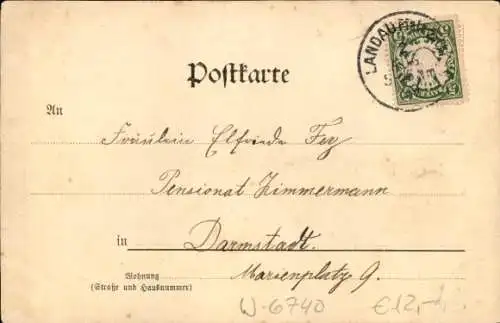 LANDAU
Postkarte
An
Fräulein Elfriede Fez
Pensionat Zimmermann
in Darmstadt.
Wohnung Marienplatz 9.
(Straße und Hausnummer)
W-6740 €12,-